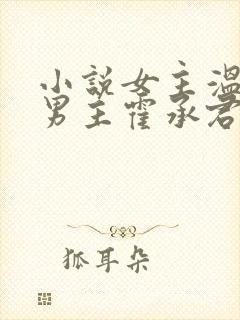 小說女主溫
男主霍承君
狐耳朵